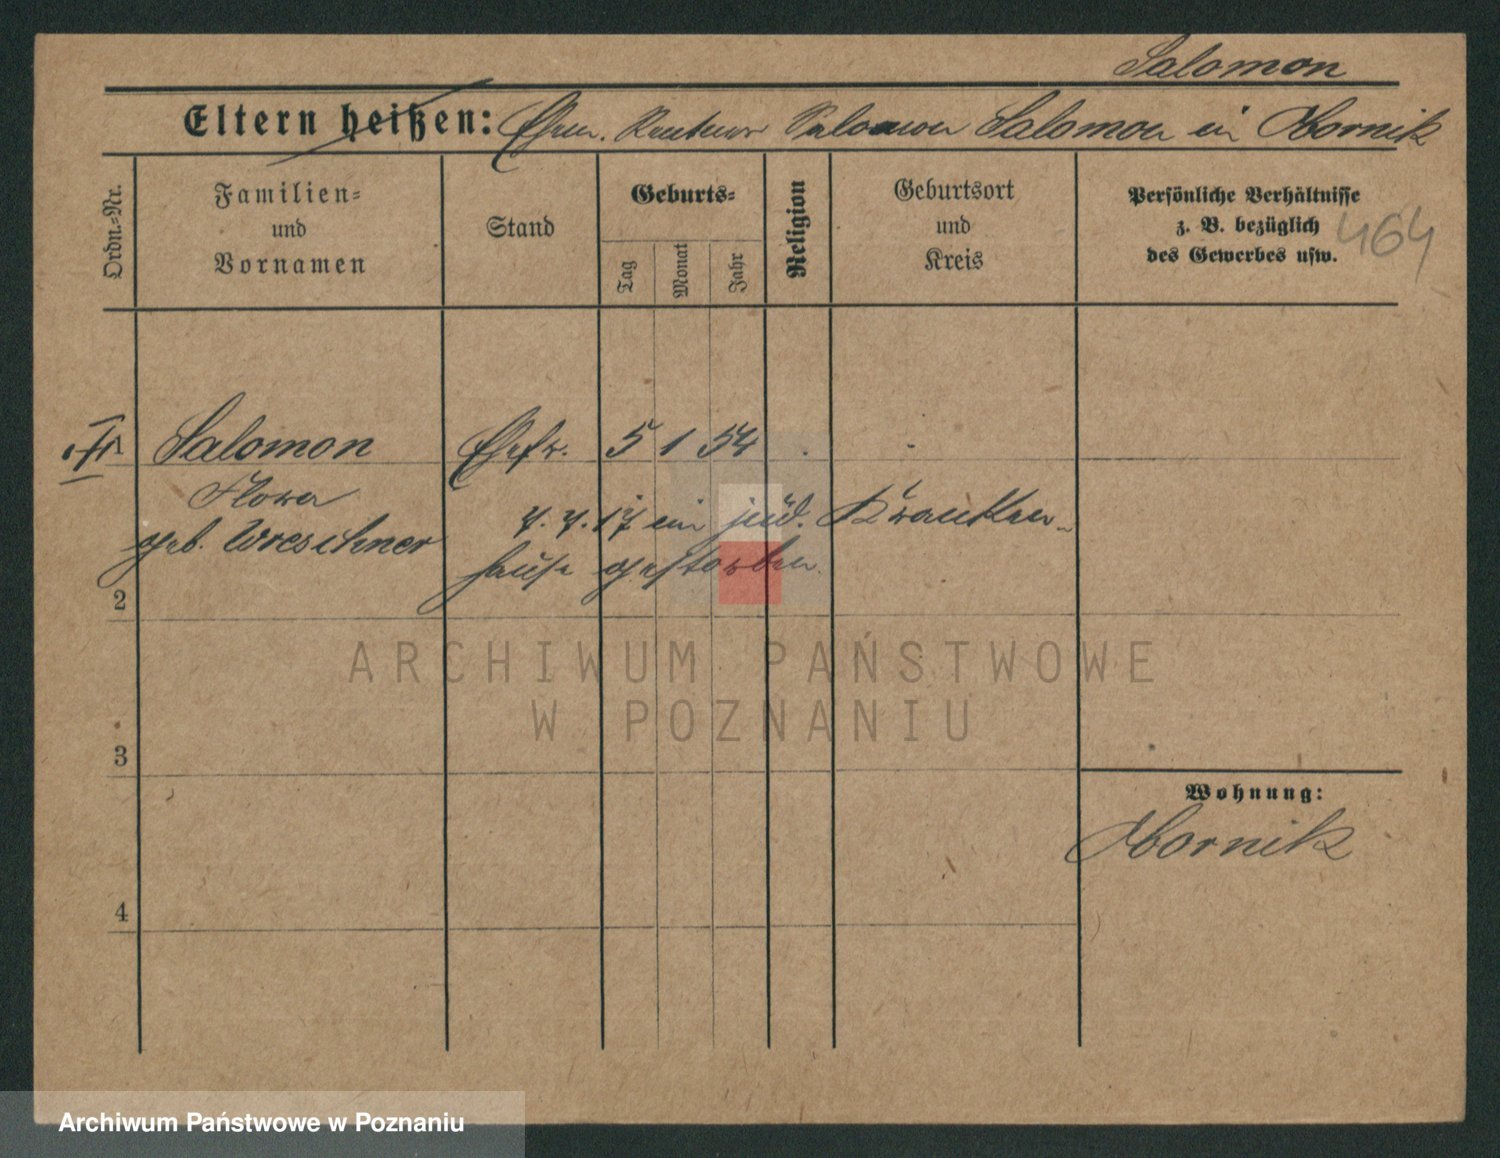 Salomon
Eltern heißen: Ehem. Rentner Salomon Salomon in Obornik
Ordn.-Nr.
Familien-
und
Vornamen
Stand
Geburts-
Tag
Monat
Jahr
Religion
Geburtsort
und
Kreis
Persönliche Verhältnisse
z. B. bezüglich
des Gewerbes usw.
464
Salomon Ehefr. 5 1 54
Flora
geb. Wreschner
7. 7. 17 im jüd. Kranken-
hause gestorben.
2
3
4
Wohnung:
Obornik
ARCHIWUM PAŃSTWOWE
W POZNANIU
Archiwum Państwowe w Poznaniu